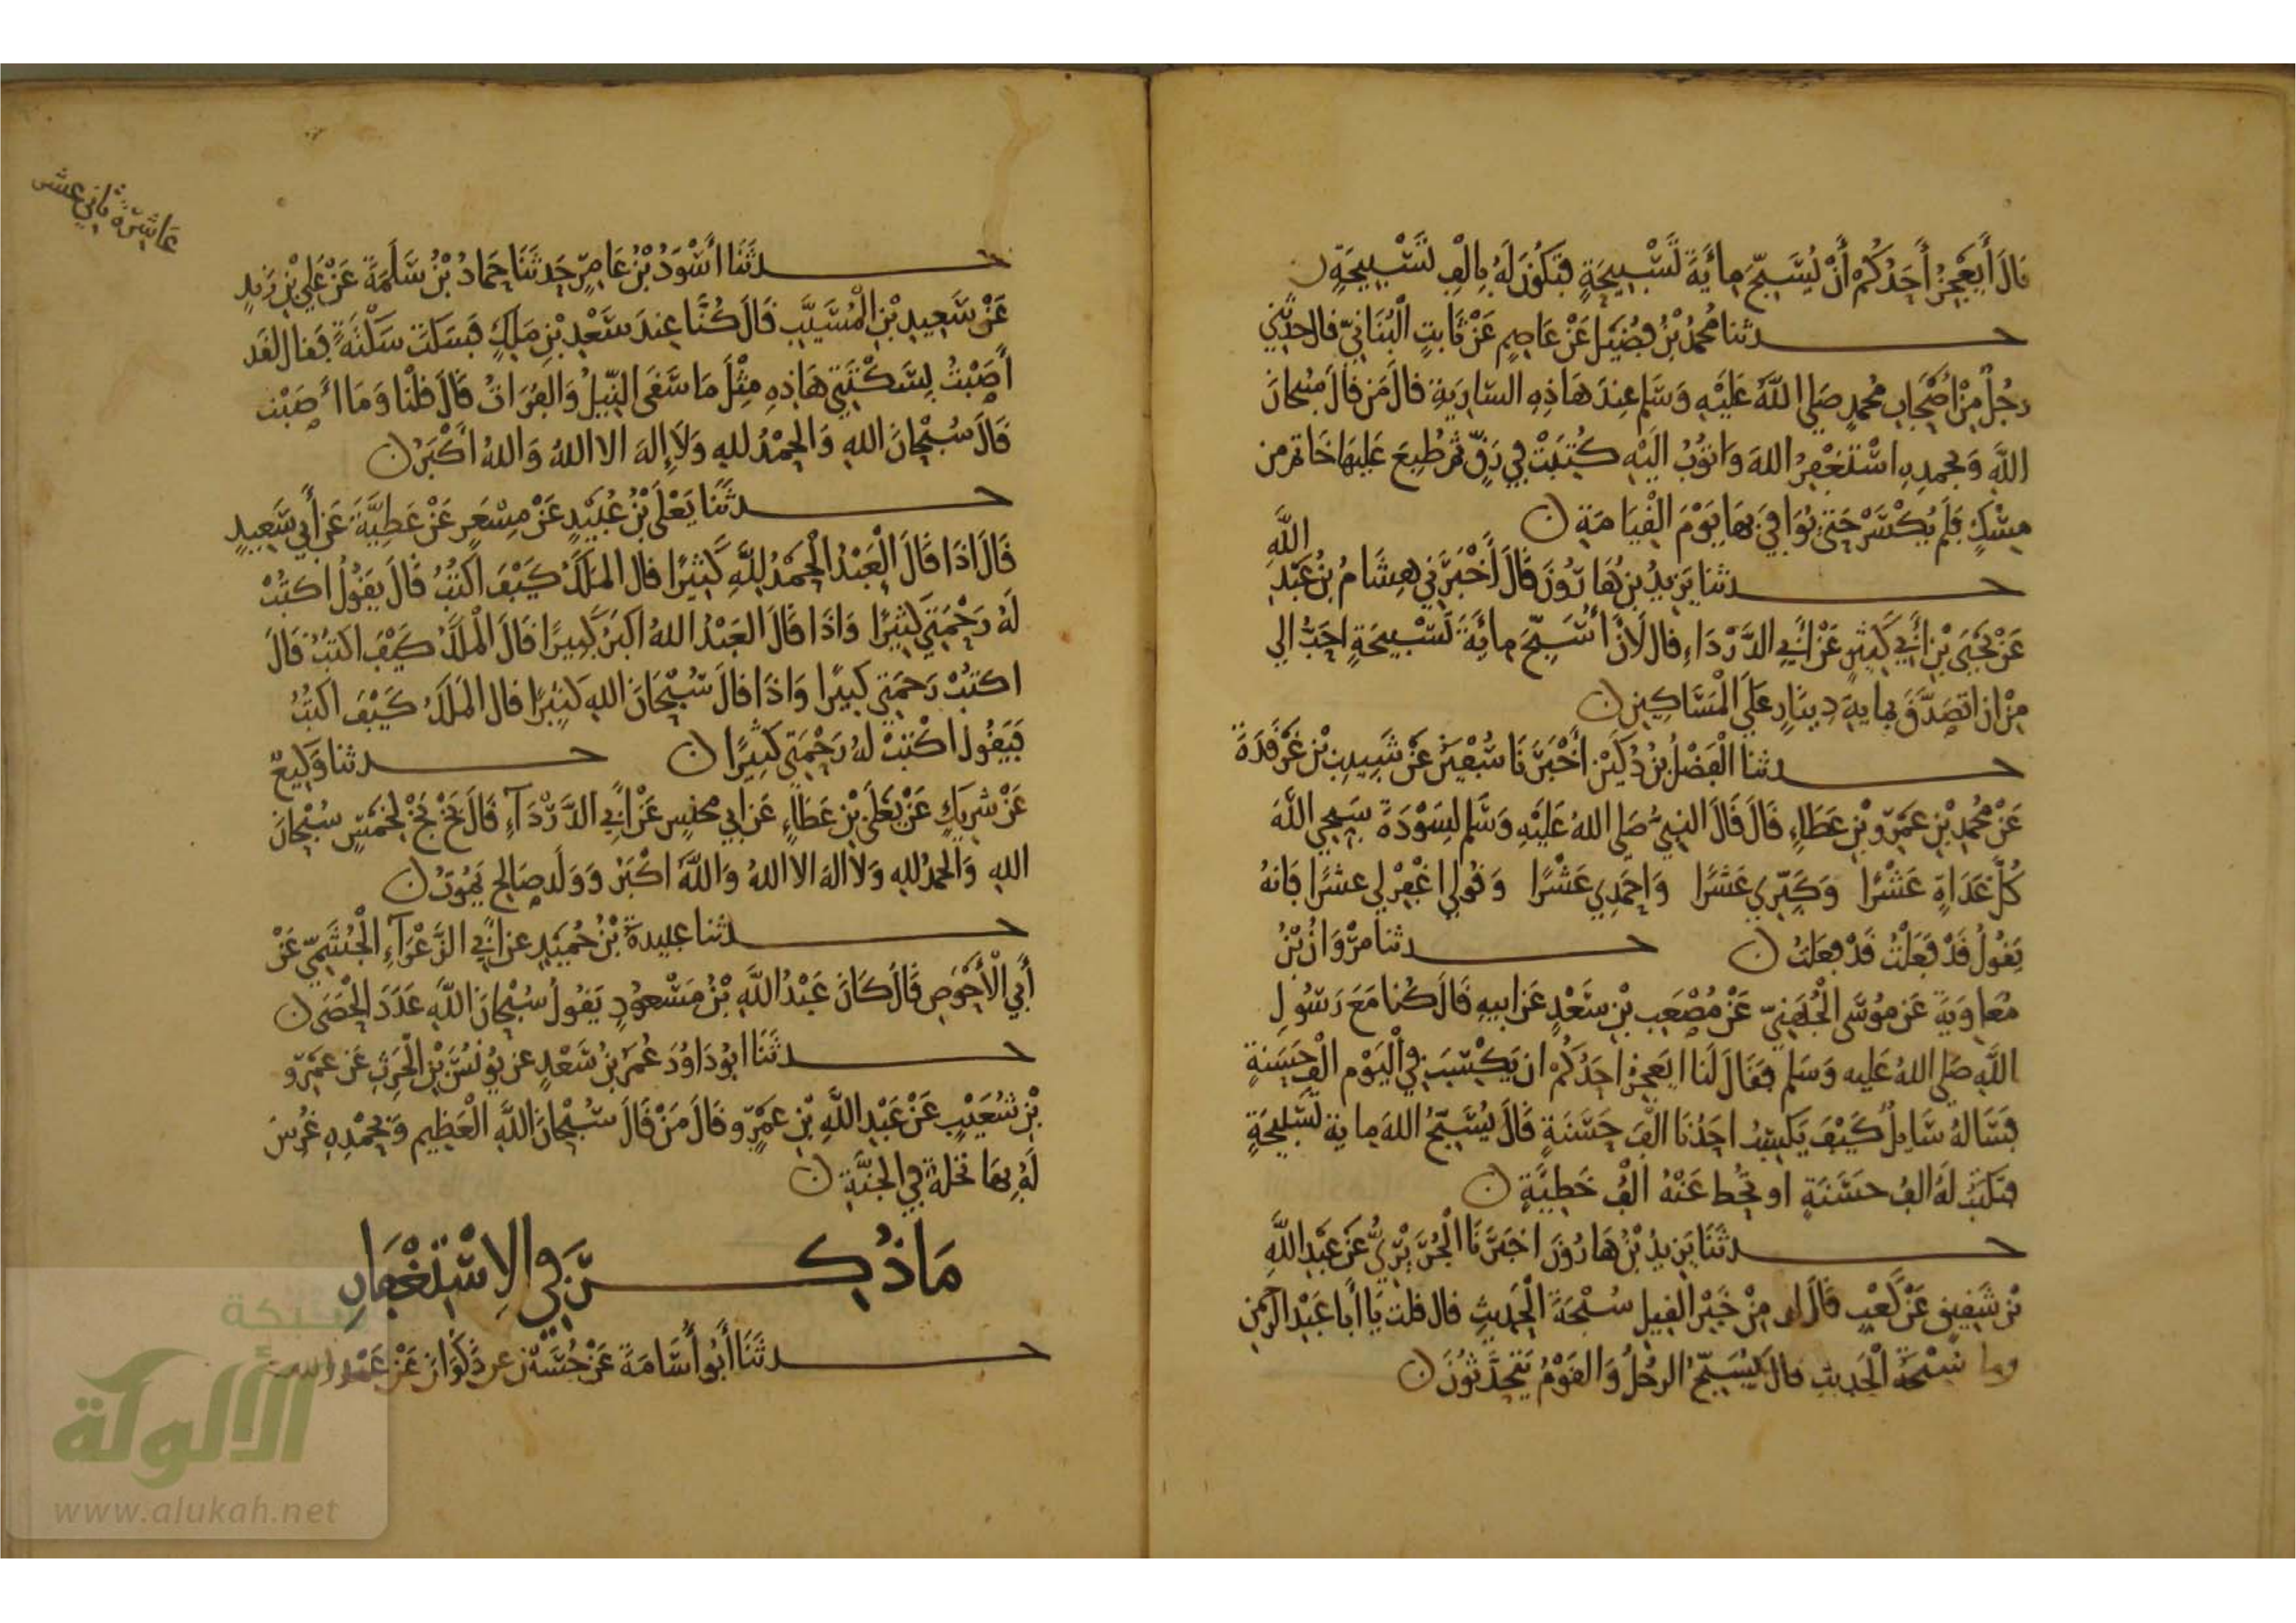 قالَ أَيَعْجِزُ أَحَدُكُمْ أَنْ يُسَبِّحَ مِائَةَ تَسْبِيحَةٍ فَتَكُونَ لَهُ بِالْفِ تَسْبِيحَةٍ ن
حدثنا مُحمدُ بْنُ فُضَيْل عَنْ عَاصِمٍ عَنْ ثَابِتٍ الْبُنَانِيّ قال حدَّثني
رجُلٌ مِنْ أَصْحَابِ مُحمدٍ صَلى اللَّهُ عَلَيْهِ وَسَلم عِندَ هَاذِهِ السّارِيَةِ قالَ مَن قَالَ سُبحانَ
اللَّهِ وَبحمدِهِ اسْتَغْفِرُ اللهَ وَاتوُبُ الَيْهِ كُتِبَتْ فِي رَقٍّ ثمَّ طُبِعَ عَلَيهَا خَاتم من
مِسْكٍ فَلَم يُكْسَرْ حَتى يُوَافِيَ بهَا يَوْمَ الْقِيَامَةِ ن
حدثنا يَزِيدُ بنُ هَارُونَ قَالَ أَخْبَرَنِي هِشَامُ بنُ عَبْدِ اللَّهِ
عَنْ يَحْيَى بْنِ أَبِي كَثِيرٍ عَنْ أَبِي الدَّرْدَاءِ قال لَانْ أُسَبِّحَ مِائَةَ تَسْبِيحَةٍ احَبُّ الي
مِنْ ان اتصَدَّقَ بمايةِ دِينَارٍ عَلَى الْمَسَاكِينِ ن
حدثنا الْفَضْلُ بنُ دُكَيْنٍ أَخْبَرَنَا سُفْيَنُ عَنْ شَبِيبِ بْنِ غَرْقَدَةَ
عَنْ مُحمدِ بْنِ عَمْرِو بْنِ عَطَاءٍ قَالَ قَالَ النبيُّ صَلى اللهُ عَلَيْهِ وَسَلم لِسَوْدَةَ سَبِّحِي اللهَ
كُلَّ غَدَاةٍ عَشْرًا وَكَبِّرِي عَشْرًا وَاحمَدِي عَشْرًا وَقولي اغْفِرْ لي عشرًا فَانهُ
يَقُولُ قَدْ فَعَلْتُ قَدْ فعَلتُ ن حدثنا مَرْوَانُ بْنُ
مُعَاوِيَةَ عَن مُوسَى الْجُهَنِيّ عَنْ مُصْعَبِ بْنِ سَعْدٍ عَن ابيهِ قَالَ كُنا مَعَ رَسُولِ
اللَّهِ صَلى اللهُ عَلَيه وَسَلم فقَالَ لَنَا ايَعجِزُ احَدُكُمْ ان يَكْسِبَ فِي الْيَوْمِ الْفَ حَسَنةٍ
فسَالهُ سَايلٌ كَيْفَ يَكسِبُ احَدُنَا الْفَ حَسَنَةٍ قَالَ يُسَبِّحُ اللهَ مِايةَ تَسْبِيحَةٍ
فتكتَبُ لَهُ الفُ حسَنَةٍ او تحُط عَنْهُ الْفُ خَطِيَّةٍ ن
حدثَنَا يَزِيدُ بْنُ هَارُونَ اخبَرَنَا الْجُرَيْرِيُّ عَنْ عَبْدِ اللَّهِ
بْنِ شَقِيقٍ عَنْ كَعْبٍ قَالَ ان مِنْ خَيْرِ القِيلِ سُبْحَةَ الْحَدِيثِ قال قلت يَا أَبا عَبْدِ الرَّحْمنِ
وما سبْحَةُ الْحَدِيثِ قالَ يُسَبِّحُ الرجُلُ وَالقَوْمُ يَتَحَدَّثُونَ ن
عَاشرة ثاني عشر
حدثَنَا أَسْوَدُ بْنُ عَامِرٍ حَدثَنَا حَمادُ بْنُ سَلَمَةَ عَنْ عَلِي بْنِ زَيدٍ
عَنْ سَعِيدِ بْنِ الْمُسَيَّبِ قَالَ كُنَّا عِندَ سَعْدِ بْنِ مَالِكٍ فَسَكَتَ سَكْتَةً فقال لقَد
أَصَبْتُ بِسَكْتَتِي هَاذِهِ مِثْلَ مَا سَقَى النِّيلُ وَالفُرَاتُ قَالَ قلْنَا وَمَا أَصَبْت
قَالَ سُبْحَانَ اللهِ وَالحمْدُ للهِ وَلَا إِلهَ الا اللهُ وَاللهُ اكْبَرُ ن
حدثَنَا يَعْلَى بْنُ عُبَيْدٍ عَنْ مِسْعَرٍ عَنْ عَطِيَّةَ عَنْ أَبِي سَعِيدٍ
قَالَ اذَا قَالَ الْعَبْدُ الْحَمْدُ لِلَّهِ كَثِيرًا قال المَلَكُ كَيْفَ اكْتُبُ قَالَ يَقُولُ اكتُبْ
لَهُ رَحْمَتِي كَثِيرًا وَاذَا قَالَ العَبْدُ اللهُ اكبَرُ كَبِيرًا قَالَ الْمَلَكُ كَيْفَ اكتُبُ قَالَ
اكتُبْ رَحمَتِي كَبيرًا وَاذَا قالَ سُبْحَانَ اللهِ كَثِيرًا قال المَلَكُ كَيْفَ اكتُبُ
فَيَقُولُ اكْتبْ لهُ رَحْمَتِي كَثِيرًا ن حدثنا وَكِيعٌ
عَنْ شرِيكٍ عَنْ يَعْلَى بْنِ عَطَاءٍ عَن ابي محنسٍ عَنْ أَبِي الدَّرْدَآءِ قَالَ بَخْ بَخْ لخمْسٍ سُبْحَانَ
اللهِ وَالحمدُ للهِ وَلا الهَ الا اللهُ وَاللَّهُ اكْبَرُ وَوَلَد صَالِح يمُوتُ ن
حدثنا عبيدةُ بْنُ حُمَيْدٍ عن أَبِي الزَّعْرَآءِ الْجُشَمِيّ عَنْ
أَبِي الْأَحْوَصِ قَالَ كَانَ عَبْدُ اللَّهِ بْنُ مَسْعُودٍ يَقُولُ سُبْحَانَ اللَّهِ عَدَدَ الْحَصَى ن
حدثَنَا ابوُ دَاوُدَ عُمَرُ بنُ سَعْدٍ عن يُونُسَ بْنِ الْحَرِثِ عَن عَمْرِو
بْنِ شُعَيْبٍ عَنْ عَبْدِ اللَّهِ بْنِ عمْرٍو قَالَ مَنْ قَالَ سُبْحَانَ اللَّهِ الْعَظِيمِ وَبحَمْدِهِ غُرِسَ
لَهُ بِهَا نخلةٌ فِي الجنَّةِ ن
مَا ذُكِرَ فِي الِاسْتِغْفَارِ
حدثَنَا أَبُو أُسَامَةَ عَنْ حُسَيْن عن ذَكْوَانَ عَنْ عَبْد الله
شبكة
الألوكة
www.alukah.net